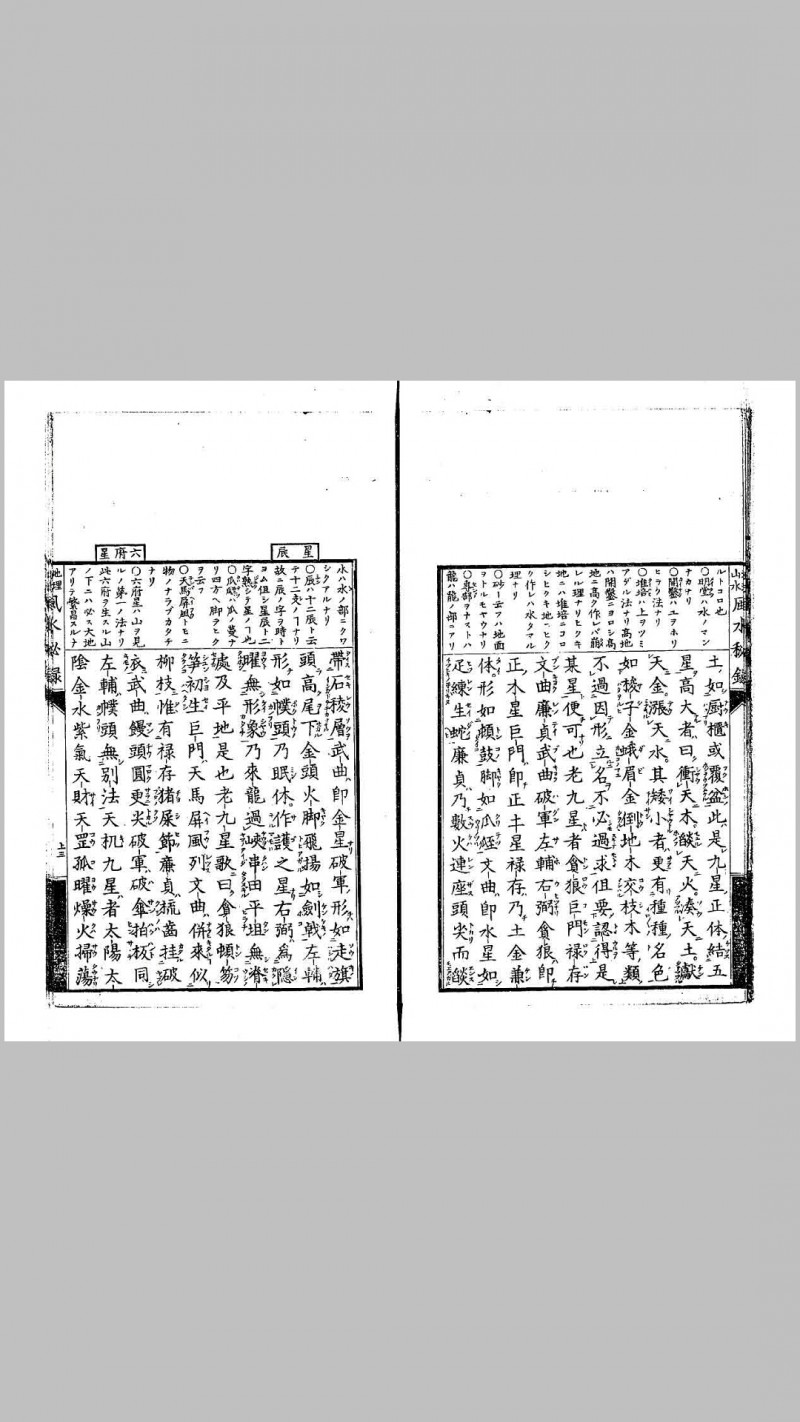 土如厨櫃或覆盆此是九星正体結五
星高大者曰衝天木燄天火湊天土獻
天金漲天水其矮小者更有種種名色
如梭子金蛾眉金倒地木交枝木等類
不過因形立名不必過求但要認得是
某星便可也老九星者貪狼巨門禄存
文曲廉貞武曲破軍左輔右弼貪狼即
正木星巨門即正土星禄存乃土金兼
体形如頓鼓脚如瓜文曲即水星如
足練生蛇廉貞乃數火連座頭尖而燄
ルトコロ也
○明堂ハ水ノマン
ナカナリ
○開鑿ハユヲホリ
ヒラク法ナリ
○堆培ハ上ヲツミ
アグル法ナリ高地
ハ開鑿ニヨロシ高
地ニ高ク作レバ
レル理ナリヒクキ
地ニハ堆培ニコロ
シヒクキ地ニヒク
ク作レハ水タマル
理ナリ
○砂ト云フハ地面
ヲトルモヤウナリ
龍ハ龍ノ部ニアリ
山水風水秘録
星辰
六府星
水ハ水ノ部ニクワ
シクアルナリ
○辰ハ十二辰ト云
テ十二支ノ丁ナリ
故ニ辰ノ字ヲ時ト
コム但シ星辰ト二
字熟シテ星ノ丁也
○瓜ハ瓜ノ蔓ナ
リ四方ヘ脚ヲヒク
ヲ云フ
○天馬屏風トモニ
物ノナラブカタチ
ナリ
○六府星ハ山ヲ見
ルノ第一ノ法ナリ
此六府ヲ生スル山
ノ下ニハ必ス大地
アリテ繁昌スルナ
帯石稜層武曲即金星破軍形如走旗
頭高尾下金頭火脚飛揚如劍戟左輔
形如幞頭乃眠休作護之星右弼為隱
曜無形象乃來龍過峽串田平坦無脊
處及平地是也老九星歌曰貪狼頓笏
笋初生巨門天馬屏風列文曲併來似
柳枝惟有禄存猪屎節廉貞梳齒挂破
衣武曲饅頭圓更尖破軍破傘拍板同
左輔幞頭無別法天机九星者太陽太
陰金水紫氣天財天罡孤曜燥火掃蕩
地理風水秘録
上三